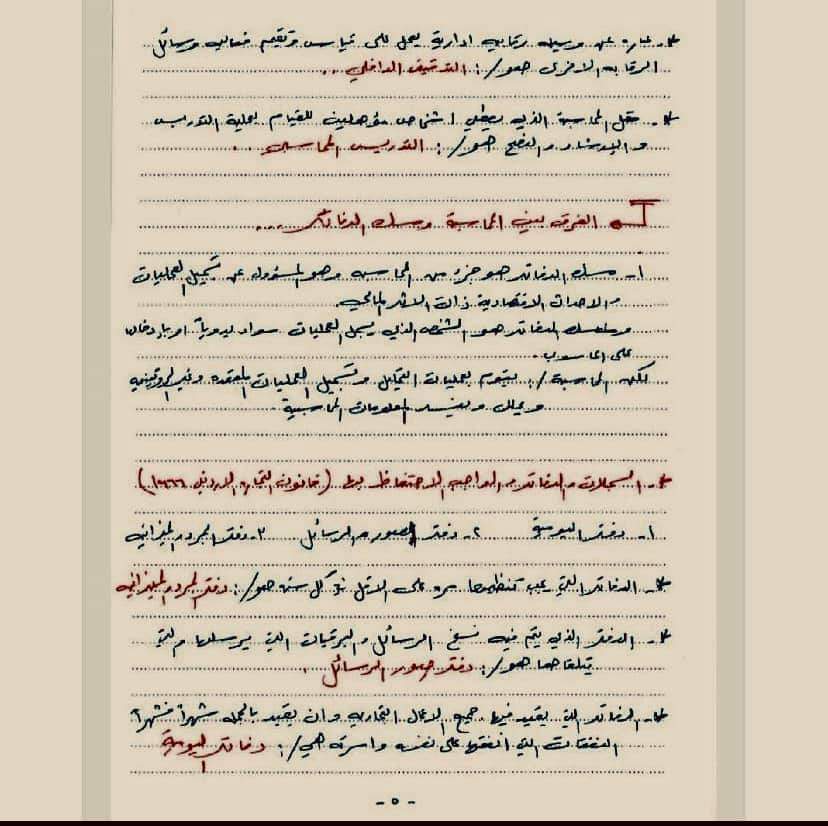 *- عباره عن وسيله رقابيه ادارية يعمل على قياس وتقييم فعاليه وسائل
الرقابه الاخرى هو/: التدقيق الداخلي ..
*- حقل المحاسبة الذي يعطي اشخاص مؤهلين للقيام بعملية التدريس
والارشاد والنصح هو/: التدريس المحاسبي ..
الفرق بين المحاسبة ومسك الدفاتر ...
١- مسك الدفاتر هو جزء من المحاسبه وهو المسؤول عن تسجيل العمليات
والاحداث الاقتصادية ذات الاثر المالي.
وماسك الدفاتر هو الشخص الذي يسجل العمليات سواء يدوياً او بادخال
على الحاسوب.
لكن المحاسبة/: يقوم بعمليات التحليل وتسجيل العمليات المعقده وغير الروتينيه
المعلومات المحاسبية.
*- السجلات والدفاتر الواجب الاحتفاظ بها (قانون التجاره الاردني ١٩٦٦)
١- دفتر اليومية ٢- دفتر صور الرسائل ٣- دفتر الجرد والميزانيه
*- الدفاتر التي يجب تنظيمها مره على الاقل في كل سنه هو/: دفتر الجرد والميزانيه
*- الدفتر الذي يتم فيه نسخ الرسائل والبرقيات التي يرسلها والتي
يتلقاها هو/: دفتر صور الرسائل .
*- الدفاتر التي يقيد فيها جميع الاعمال التجاريه وان يقيد بالجمله شهراً فشهراً
النفقات التي انفقها على نفسه واسرته هي/: دفاتر اليومية
- ٥ -